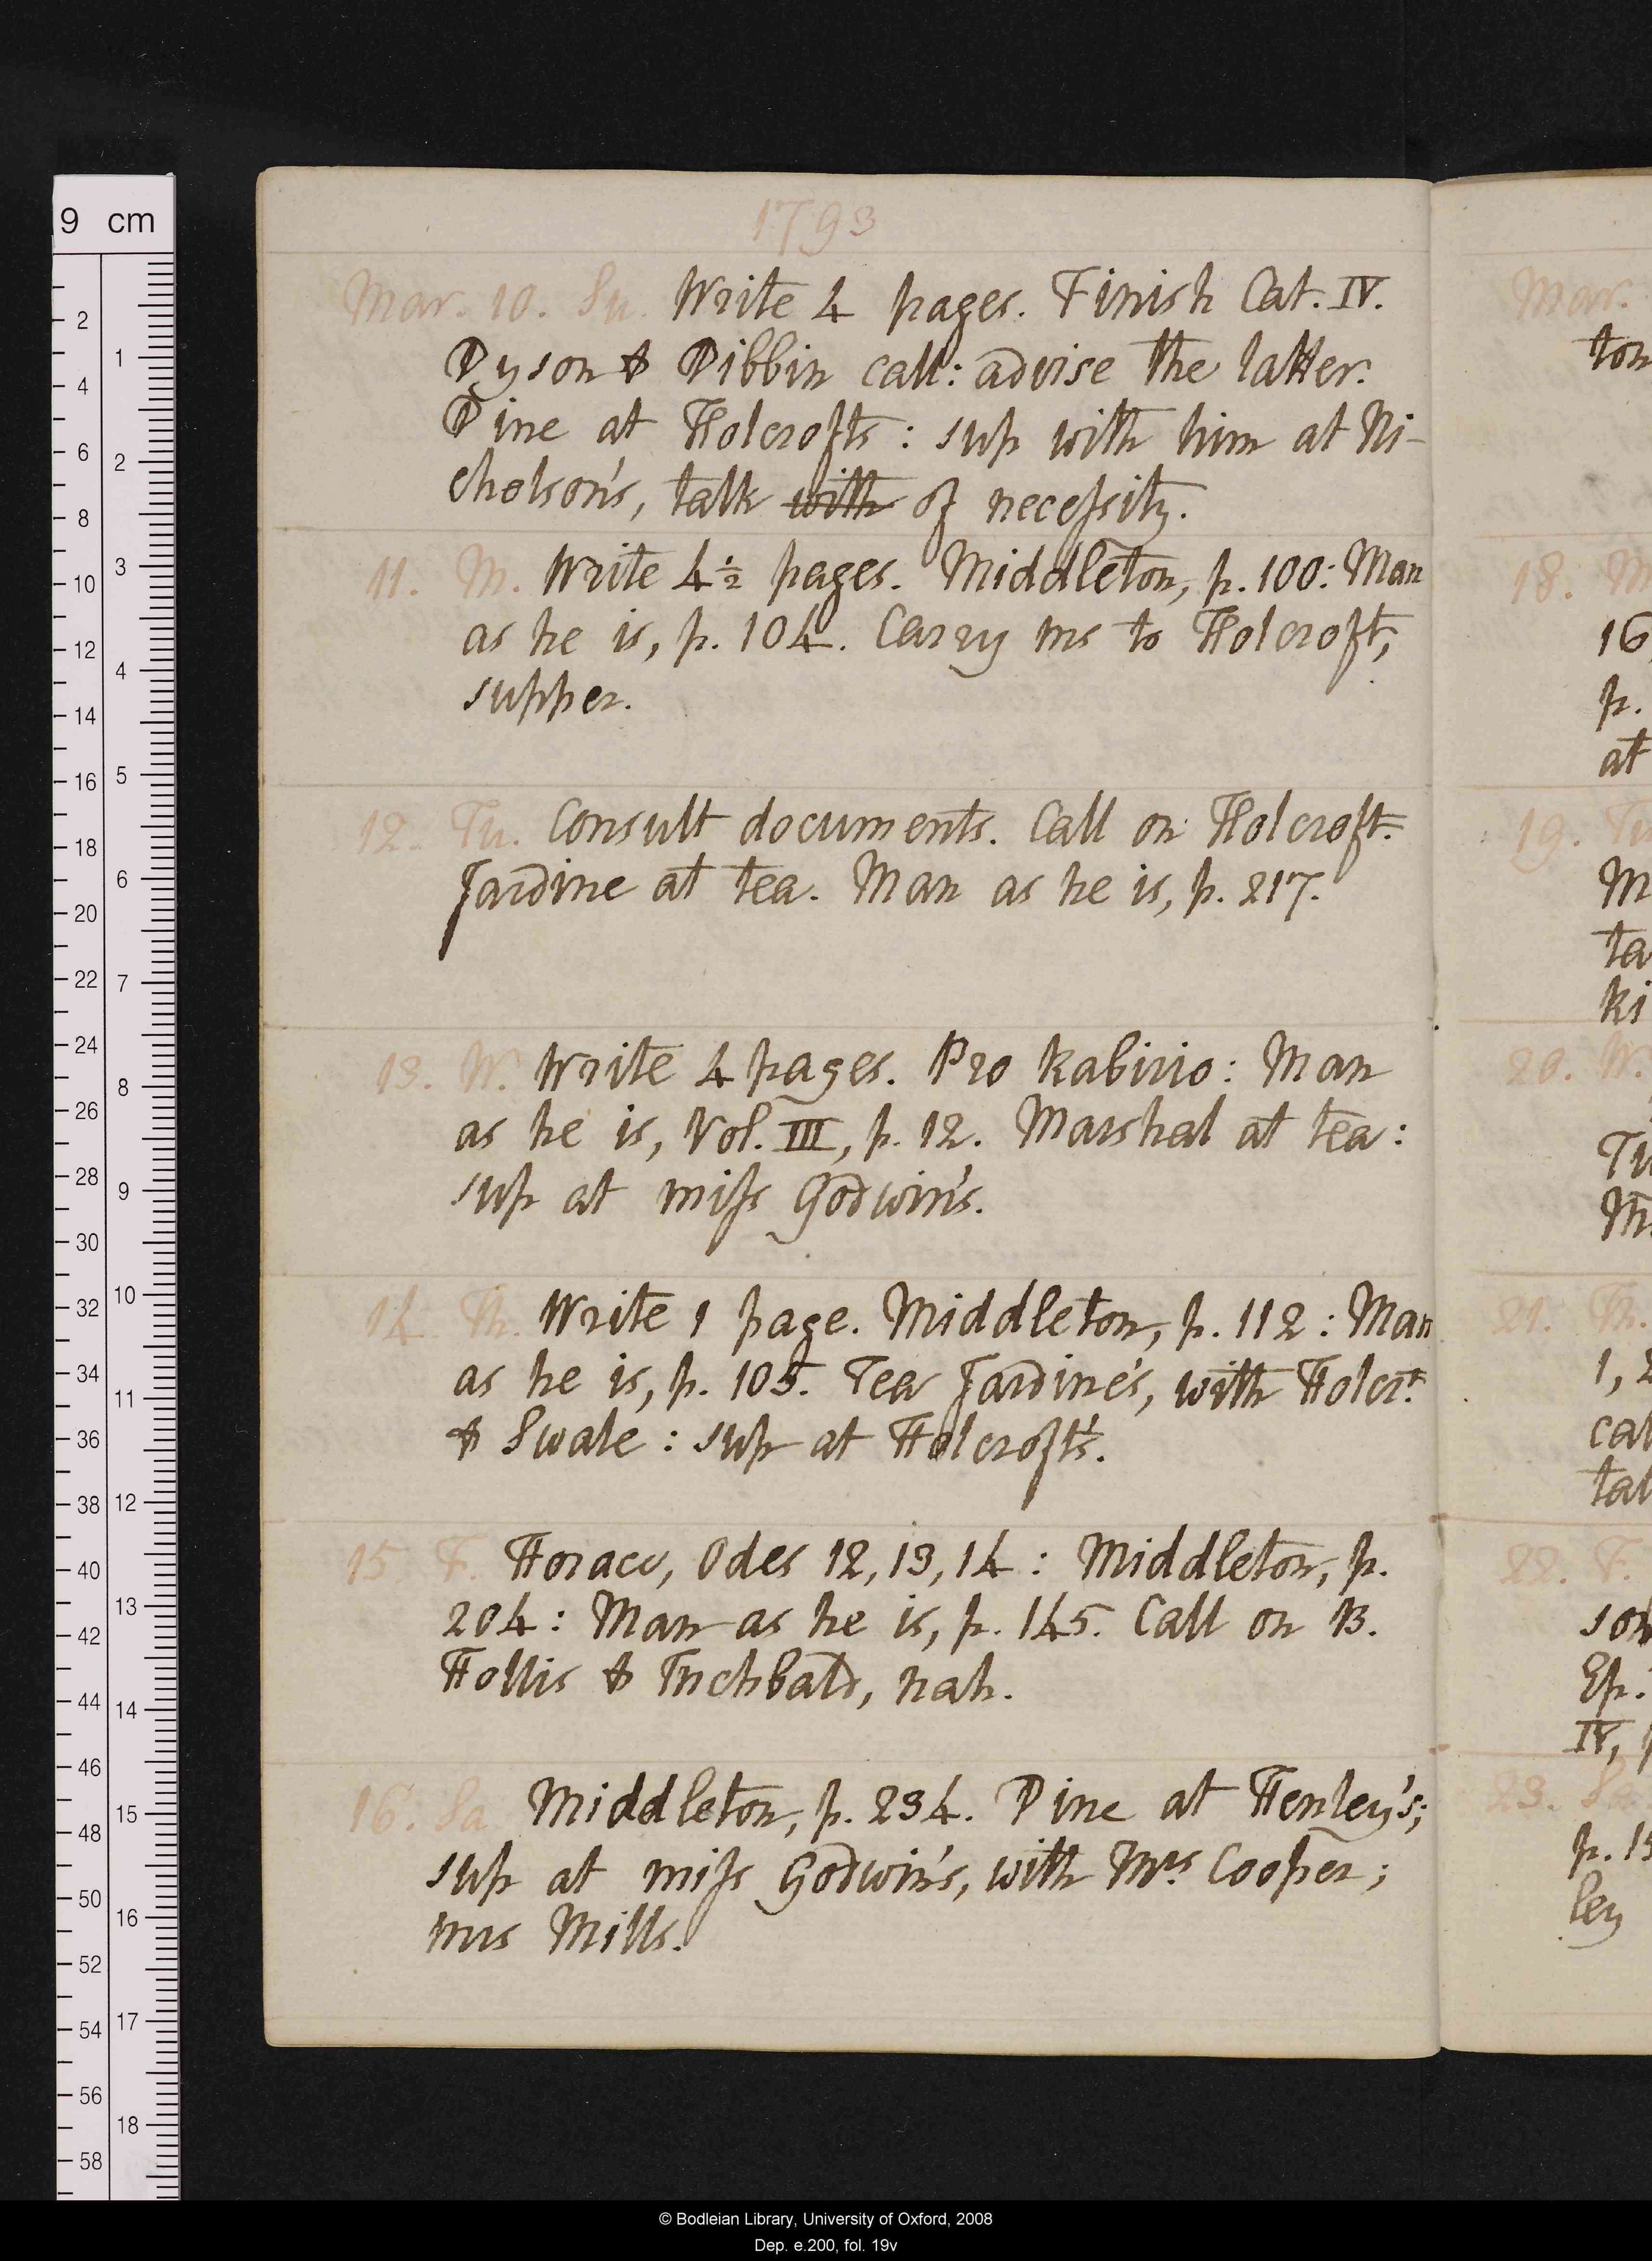 1793
Mar. 10. Su. Write 4 pages. Finish Cat. IV.
Dyson & Dibbin call: advise the latter.
Dine at Holcrofts: sup with him at Ni-
cholson's, talk with of necessity.
11. M. Write 4½ pages. Middleton, p. 100: Man
as he is, p. 104. Carry ms to Holcroft,
supper.
12. Tu. Consult documents. Call on Holcroft.
Jardine at tea. Man as he is, p. 217.
13. W. Write 4 pages. Pro Rabirio: Man
as he is, Vol. III, p. 12. Marshal at tea:
sup at miss Godwin's.
14. Th. Write 1 page. Middleton, p. 112: Man
as he is, p. 105. Tea Jardine's, with Holcrt.
& Swale: sup at Holcroft's.
15. F. Horace, Odes 12, 13, 14: Middleton, p.
204: Man as he is, p. 145. Call on B.
Hollis & Inchbald, nah.
16. Sa Middleton, p. 234. Dine at Henley's;
sup at miss Godwin's, with Mrs. Cooper;
mrs Mills.
Mar.
ton
18. M
16
p.
at
19. Tu
M
ta
ki
20. W.
Tu
M
21. Th.
1, 2
cal
tal
22. F.
son
Ep.
IV, p
23. Sa
p. 15
ley
9 cm
2
4
6
8
10
12
14
16
18
20
22
24
26
28
30
32
34
36
38
40
42
44
46
48
50
52
54
56
58
1
2
3
4
5
6
7
8
9
10
11
12
13
14
15
16
17
18
© Bodleian Library, University of Oxford, 2008
Dep. e.200, fol. 19v